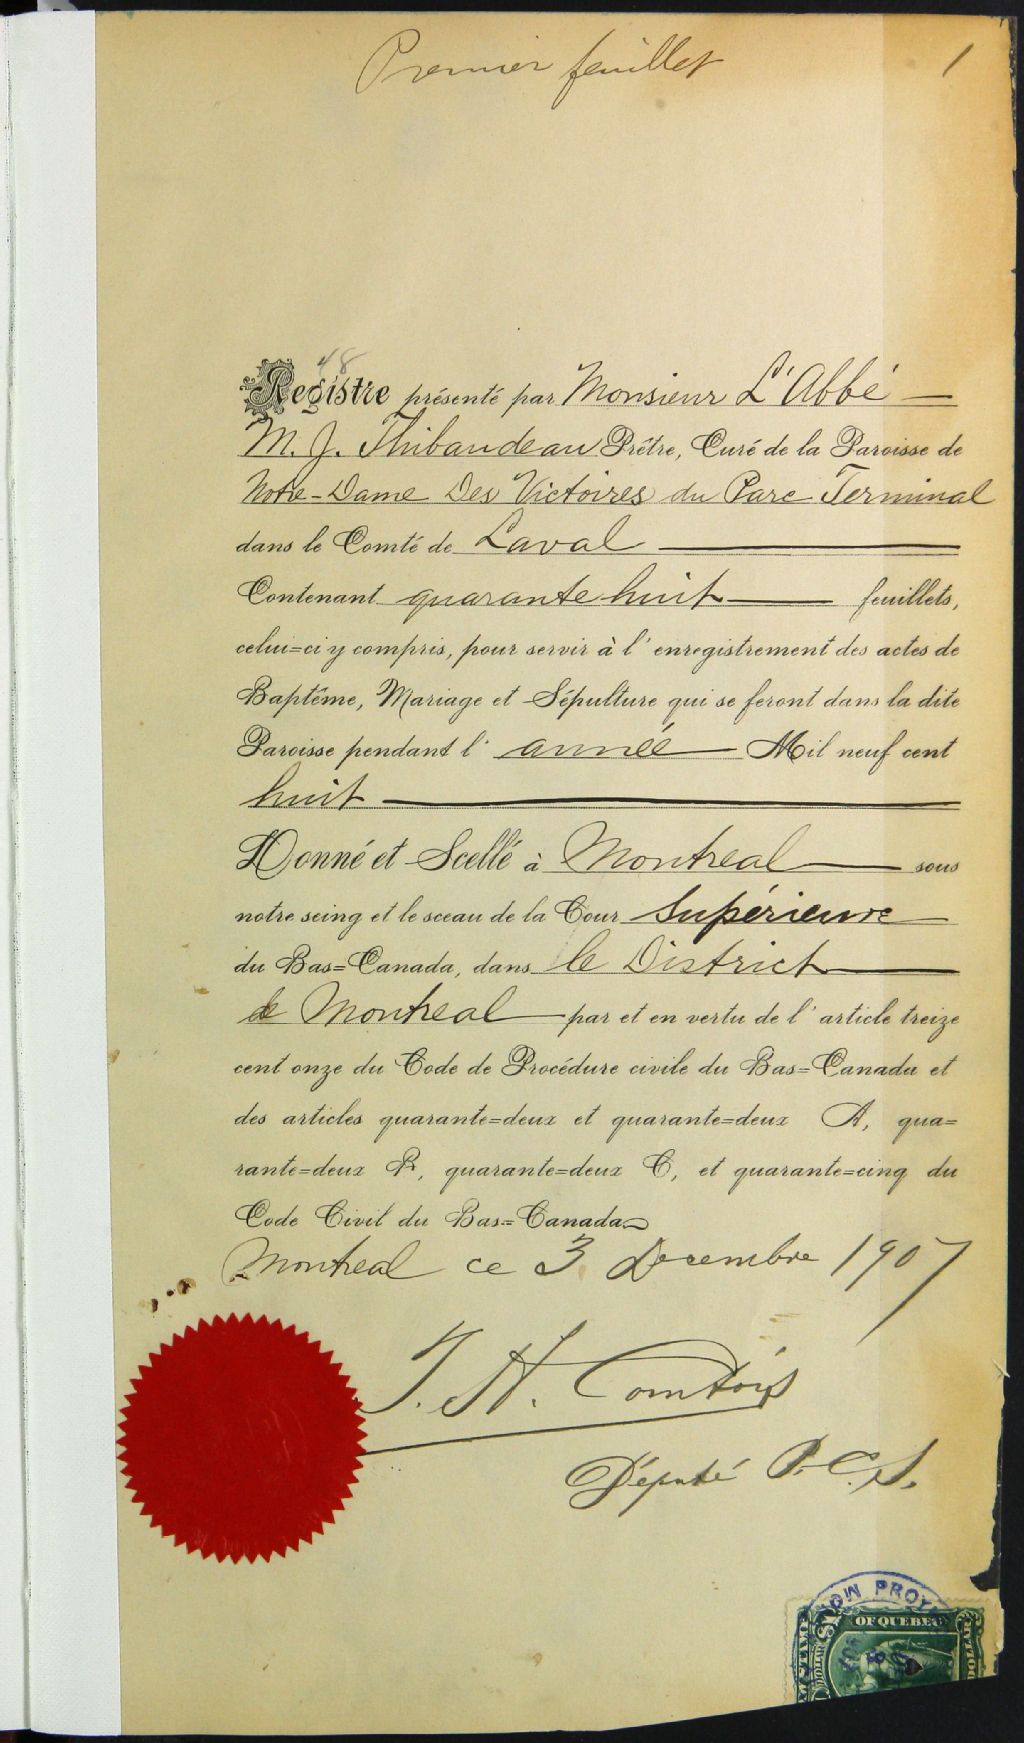 Premier feuillet 1
48
Registre présenté par Monsieur L'Abbé
M. J. Thibaudeau Prêtre, Curé de la Paroisse de
Notre-Dame Des Victoires du Parc Terminal
dans le Comté de Laval
Contenant quarante huit feuillets,
celui=ci y compris, pour servir à l'enregistrement des actes de
Baptême, Mariage et Sépulture qui se feront dans la dite
Paroisse pendant l'année Mil neuf cent
huit
Donné et Scellé à Montreal sous
notre seing et le sceau de la Cour Supérieure
du Bas=Canada, dans le District
de Montreal par et en vertu de l'article treize
cent onze du Code de Procédure civile du Bas=Canada et
des articles quarante=deux et quarante=deux A, qua=
rante=deux B, quarante=deux C, et quarante=cinq du
Code Civil du Bas=Canada
Montreal ce 3 Decembre 1907
J. H. Comtois
Député P.C.S.
OF QUEBEC
DOLLAR